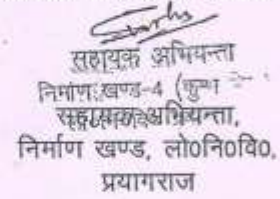 सहायक अभियन्ता
निर्माण खण्ड-4 (कुम्भ
सहायक अभियन्ता,
निर्माण खण्ड, लो०नि०वि०,
प्रयागराज